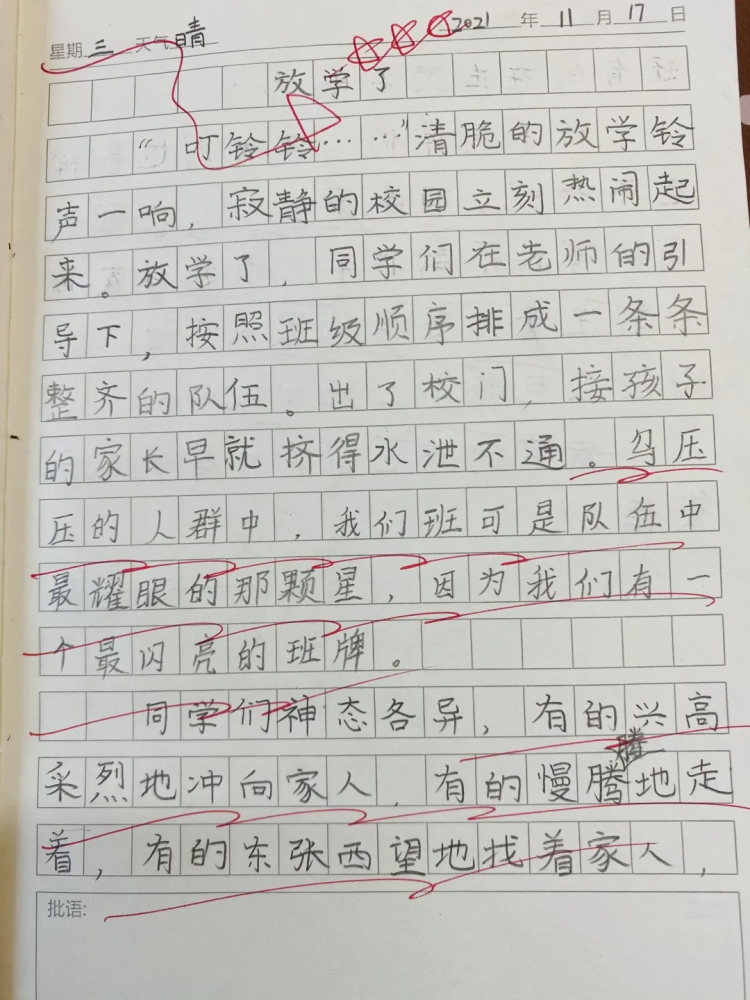 2021 年 11 月 17 日
星期 三 天气 晴
放学了
“叮铃铃……”清脆的放学铃
声一响，寂静的校园立刻热闹起
来。放学了，同学们在老师的引
导下，按照班级顺序排成一条条
整齐的队伍。出了校门，接孩子
的家长早就挤得水泄不通。乌压
压的人群中，我们班可是队伍中
最耀眼的那颗星，因为我们有一
个最闪亮的班牌。
同学们神态各异，有的兴高
采烈地冲向家人，有的慢腾腾地走
着，有的东张西望地找着家人，
批语: